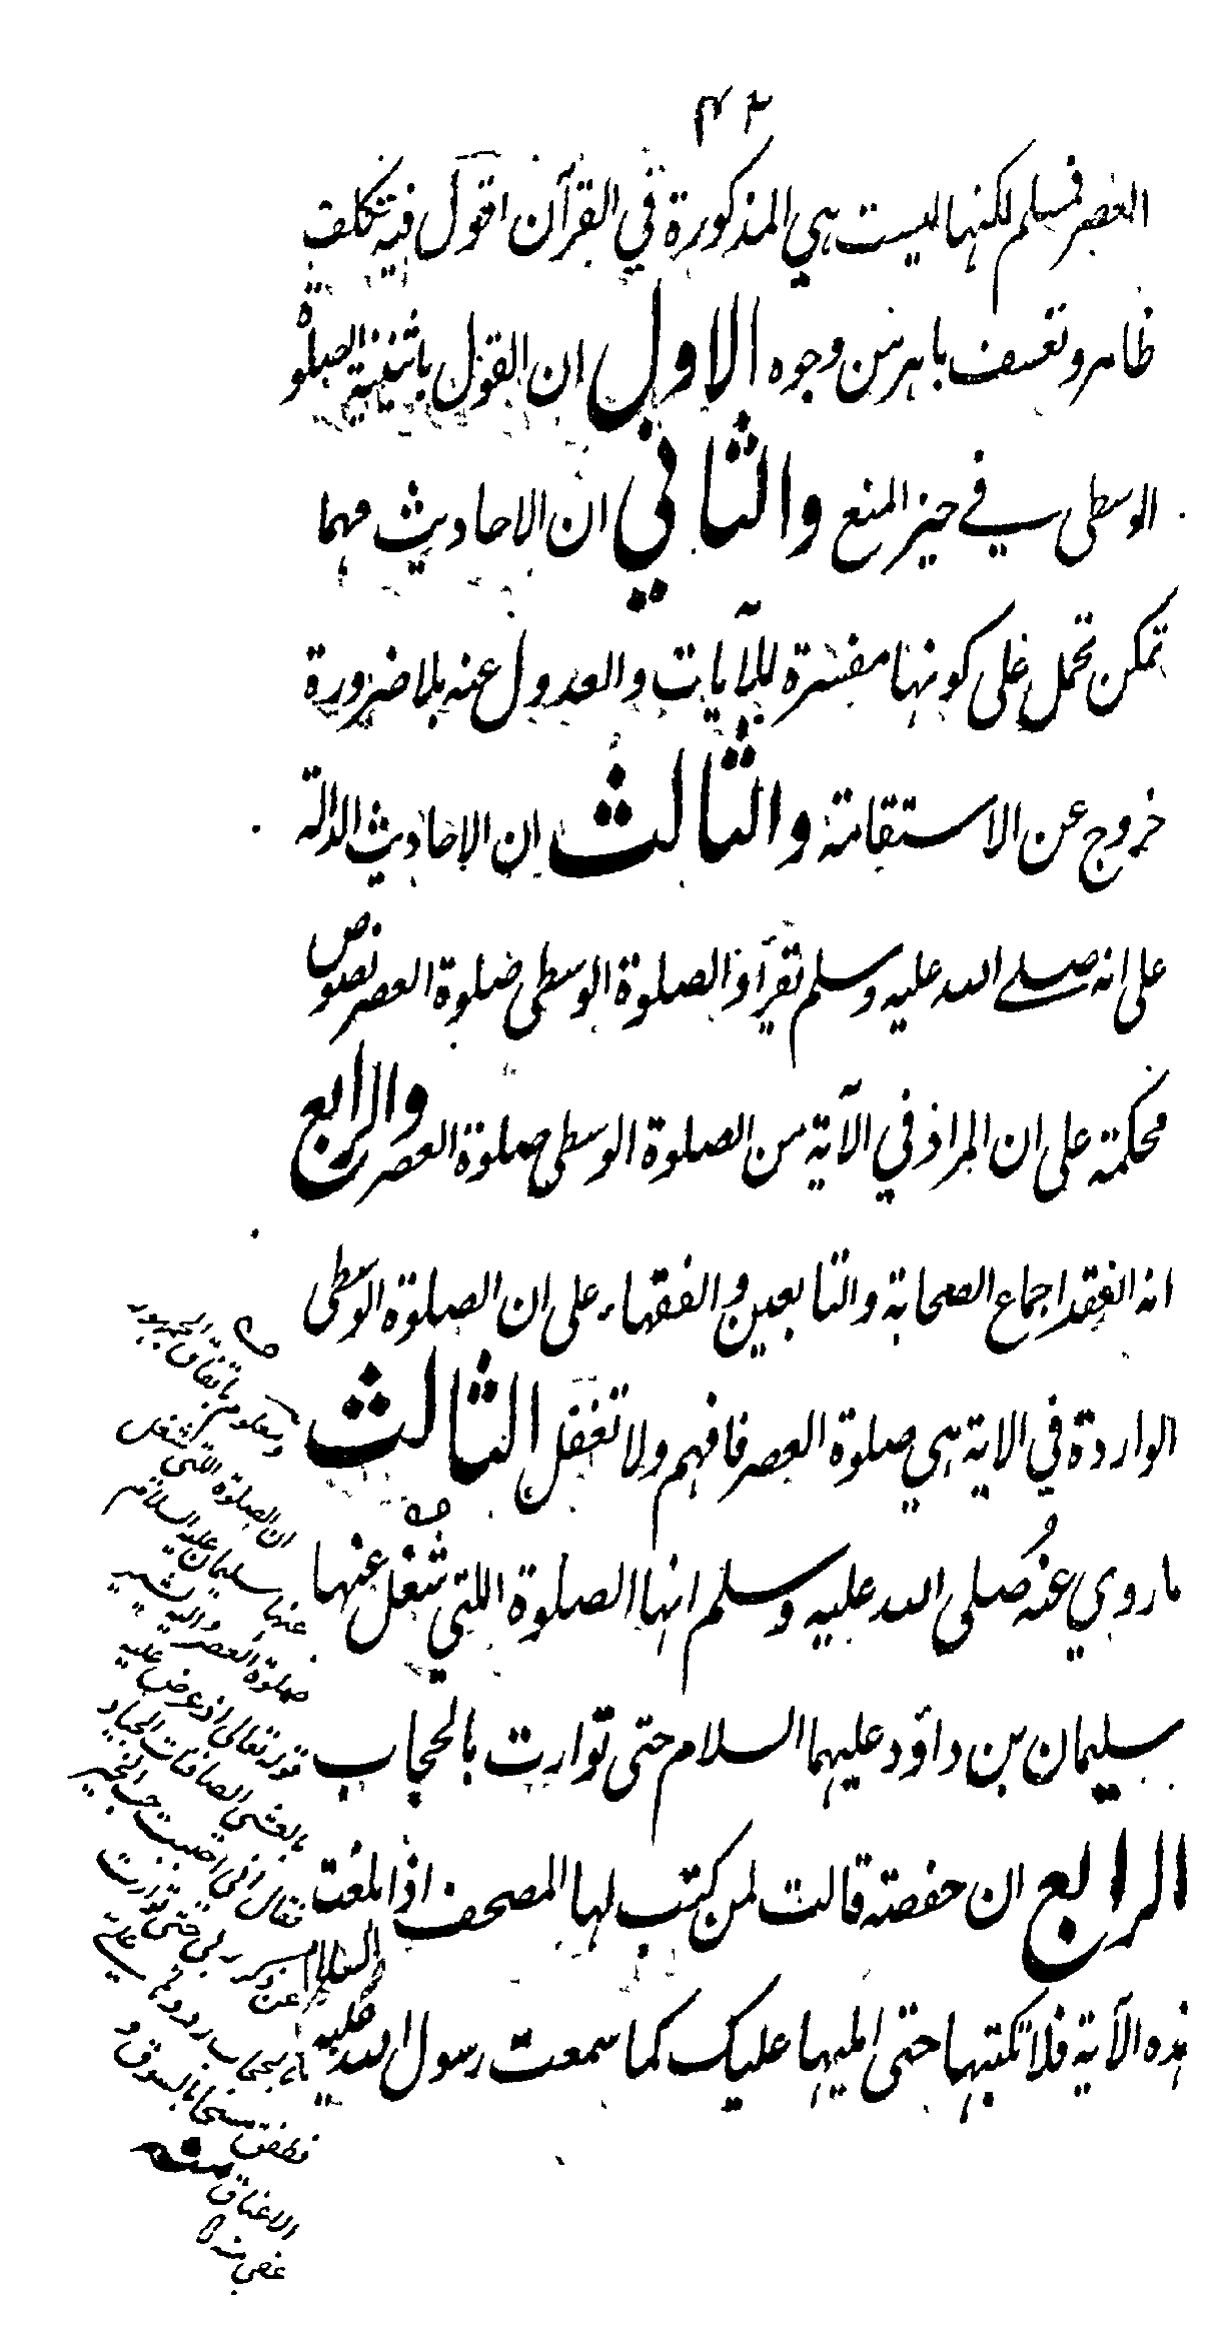 ٤٣
العصر فمسلم لكنها ليست هي المذكورة في القرآن اقول فيه تكلف
ظاهر وتعسف باهر من وجوه الاول ان القول باثنينية الصلوة
الوسطى في حيز المنع والثاني ان الاحاديث مهما
تمكن تحمل على كونها مفسرة للآيات والعدول عنه بلا ضرورة
خروج عن الاستقامة والثالث ان الاحاديث الدالة
على انه صلى الله عليه وسلم يقرأ والصلوة الوسطى صلوة العصر نصوص
محكمة على ان المراد في الآية من الصلوة الوسطى صلوة العصر والرابع
انه انعقد اجماع الصحابة والتابعين والفقهاء على ان الصلوة الوسطى
الواردة في الاية هي صلوة العصر فافهم ولا تغفل الثالث
ما روي عنه صلى الله عليه وسلم انها الصلوة اللتي شغل عنها
سليمان بن داؤد عليهما السلام حتى توارت بالحجاب
الرابع ان حفصة قالت لمن كتب لها المصحف اذا بلغت
هذه الآية فلا تكتبها حتى امليها عليك كما سمعت رسول الله عليه السلام
ومعلوم باتفاق الجمهور
ان الصلوة اللتي شغل
عنها سليمان عليه السلام
صلوة العصر واليه يشير
قوله تعالى اذ عرض عليه
بالعشي الصافنات الجياد
فقال اني احببت حب الخير
عن ذكر ربي حتى توارت
بالحجاب ردوها علي
فطفق مسحا بالسوق و
الاعناق منه